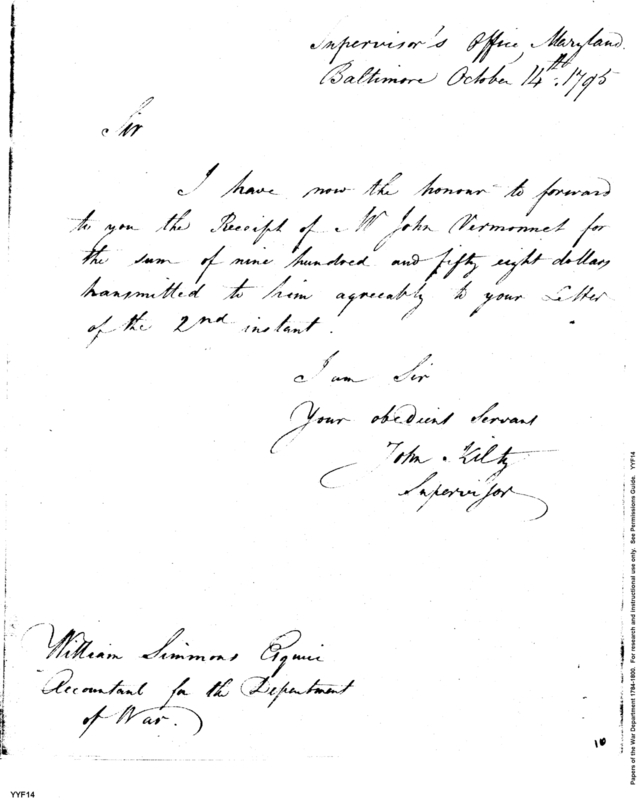 Supervisor's Office, Maryland.
Baltimore October 14th. 1795
Sir
I have now the honour to forward
to you the Receipt of Mr John Vermonnet for
the sum of nine hundred and fifty eight dollars
transmitted to him agreeably to your Letter
of the 2nd instant.
I am Sir
Your obedient Servant
John Kilty
Supervisor
William Simmons Esquire
Accountant for the Department
of War.
10
YYF14
Papers of the War Department 1784-1800. For research and instructional use only. See Permissions Guide. YYF14